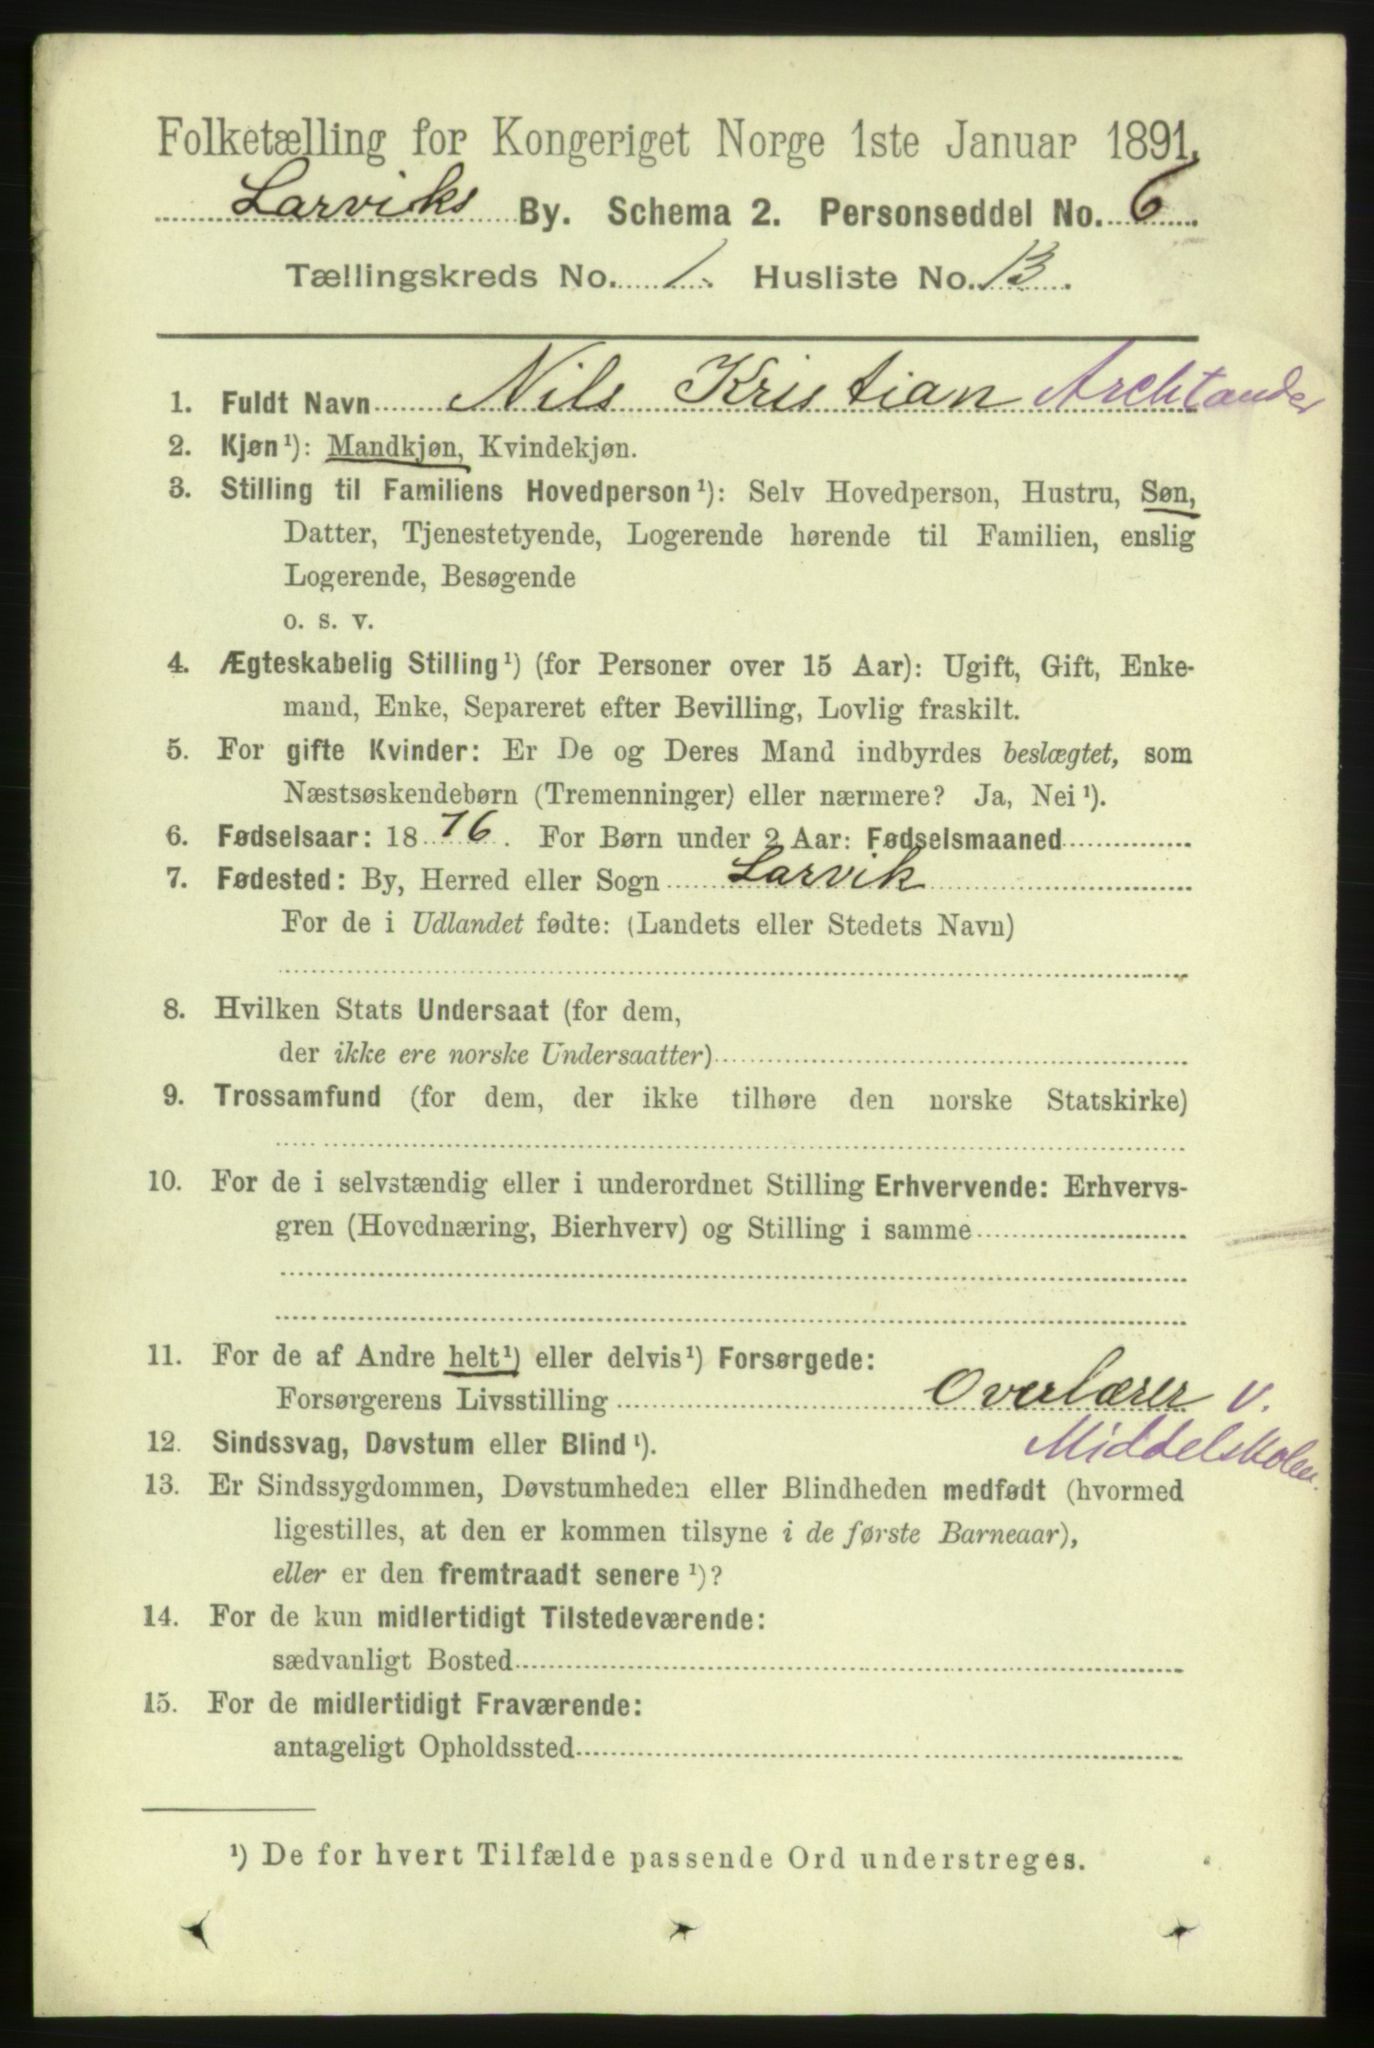 Folketælling for Kongeriget Norge 1ste Januar 1891.
Larviks By. Schema 2. Personseddel No. 6
Tællingskreds No. 1. Husliste No. 13.
1. Fuldt Navn Nils Kristian Archtander
2. Kjøn¹): Mandkjøn, Kvindekjøn.
3. Stilling til Familiens Hovedperson¹): Selv Hovedperson, Hustru, Søn,
Datter, Tjenestetyende, Logerende hørende til Familien, enslig
Logerende, Besøgende
o. s. v.
4. Ægteskabelig Stilling¹) (for Personer over 15 Aar): Ugift, Gift, Enke-
mand, Enke, Separeret efter Bevilling, Lovlig fraskilt.
5. For gifte Kvinder: Er De og Deres Mand indbyrdes beslægtet, som
Næstsøskendebørn (Tremenninger) eller nærmere? Ja, Nei¹).
6. Fødselsaar: 1876. For Børn under 2 Aar: Fødselsmaaned
7. Fødested: By, Herred eller Sogn Larvik
For de i Udlandet fødte: (Landets eller Stedets Navn)
8. Hvilken Stats Undersaat (for dem,
der ikke ere norske Undersaatter)
9. Trossamfund (for dem, der ikke tilhøre den norske Statskirke)
10. For de i selvstændig eller i underordnet Stilling Erhvervende: Erhvervs-
gren (Hovednæring, Bierhverv) og Stilling i samme
11. For de af Andre helt¹) eller delvis¹) Forsørgede:
Forsørgerens Livsstilling Overlærer v.
Middelskolen.
12. Sindssvag, Døvstum eller Blind¹).
13. Er Sindssygdommen, Døvstumheden eller Blindheden medfødt (hvormed
ligestilles, at den er kommen tilsyne i de første Barneaar),
eller er den fremtraadt senere¹)?
14. For de kun midlertidigt Tilstedeværende:
sædvanligt Bosted
15. For de midlertidigt Fraværende:
antageligt Opholdssted
¹) De for hvert Tilfælde passende Ord understreges.